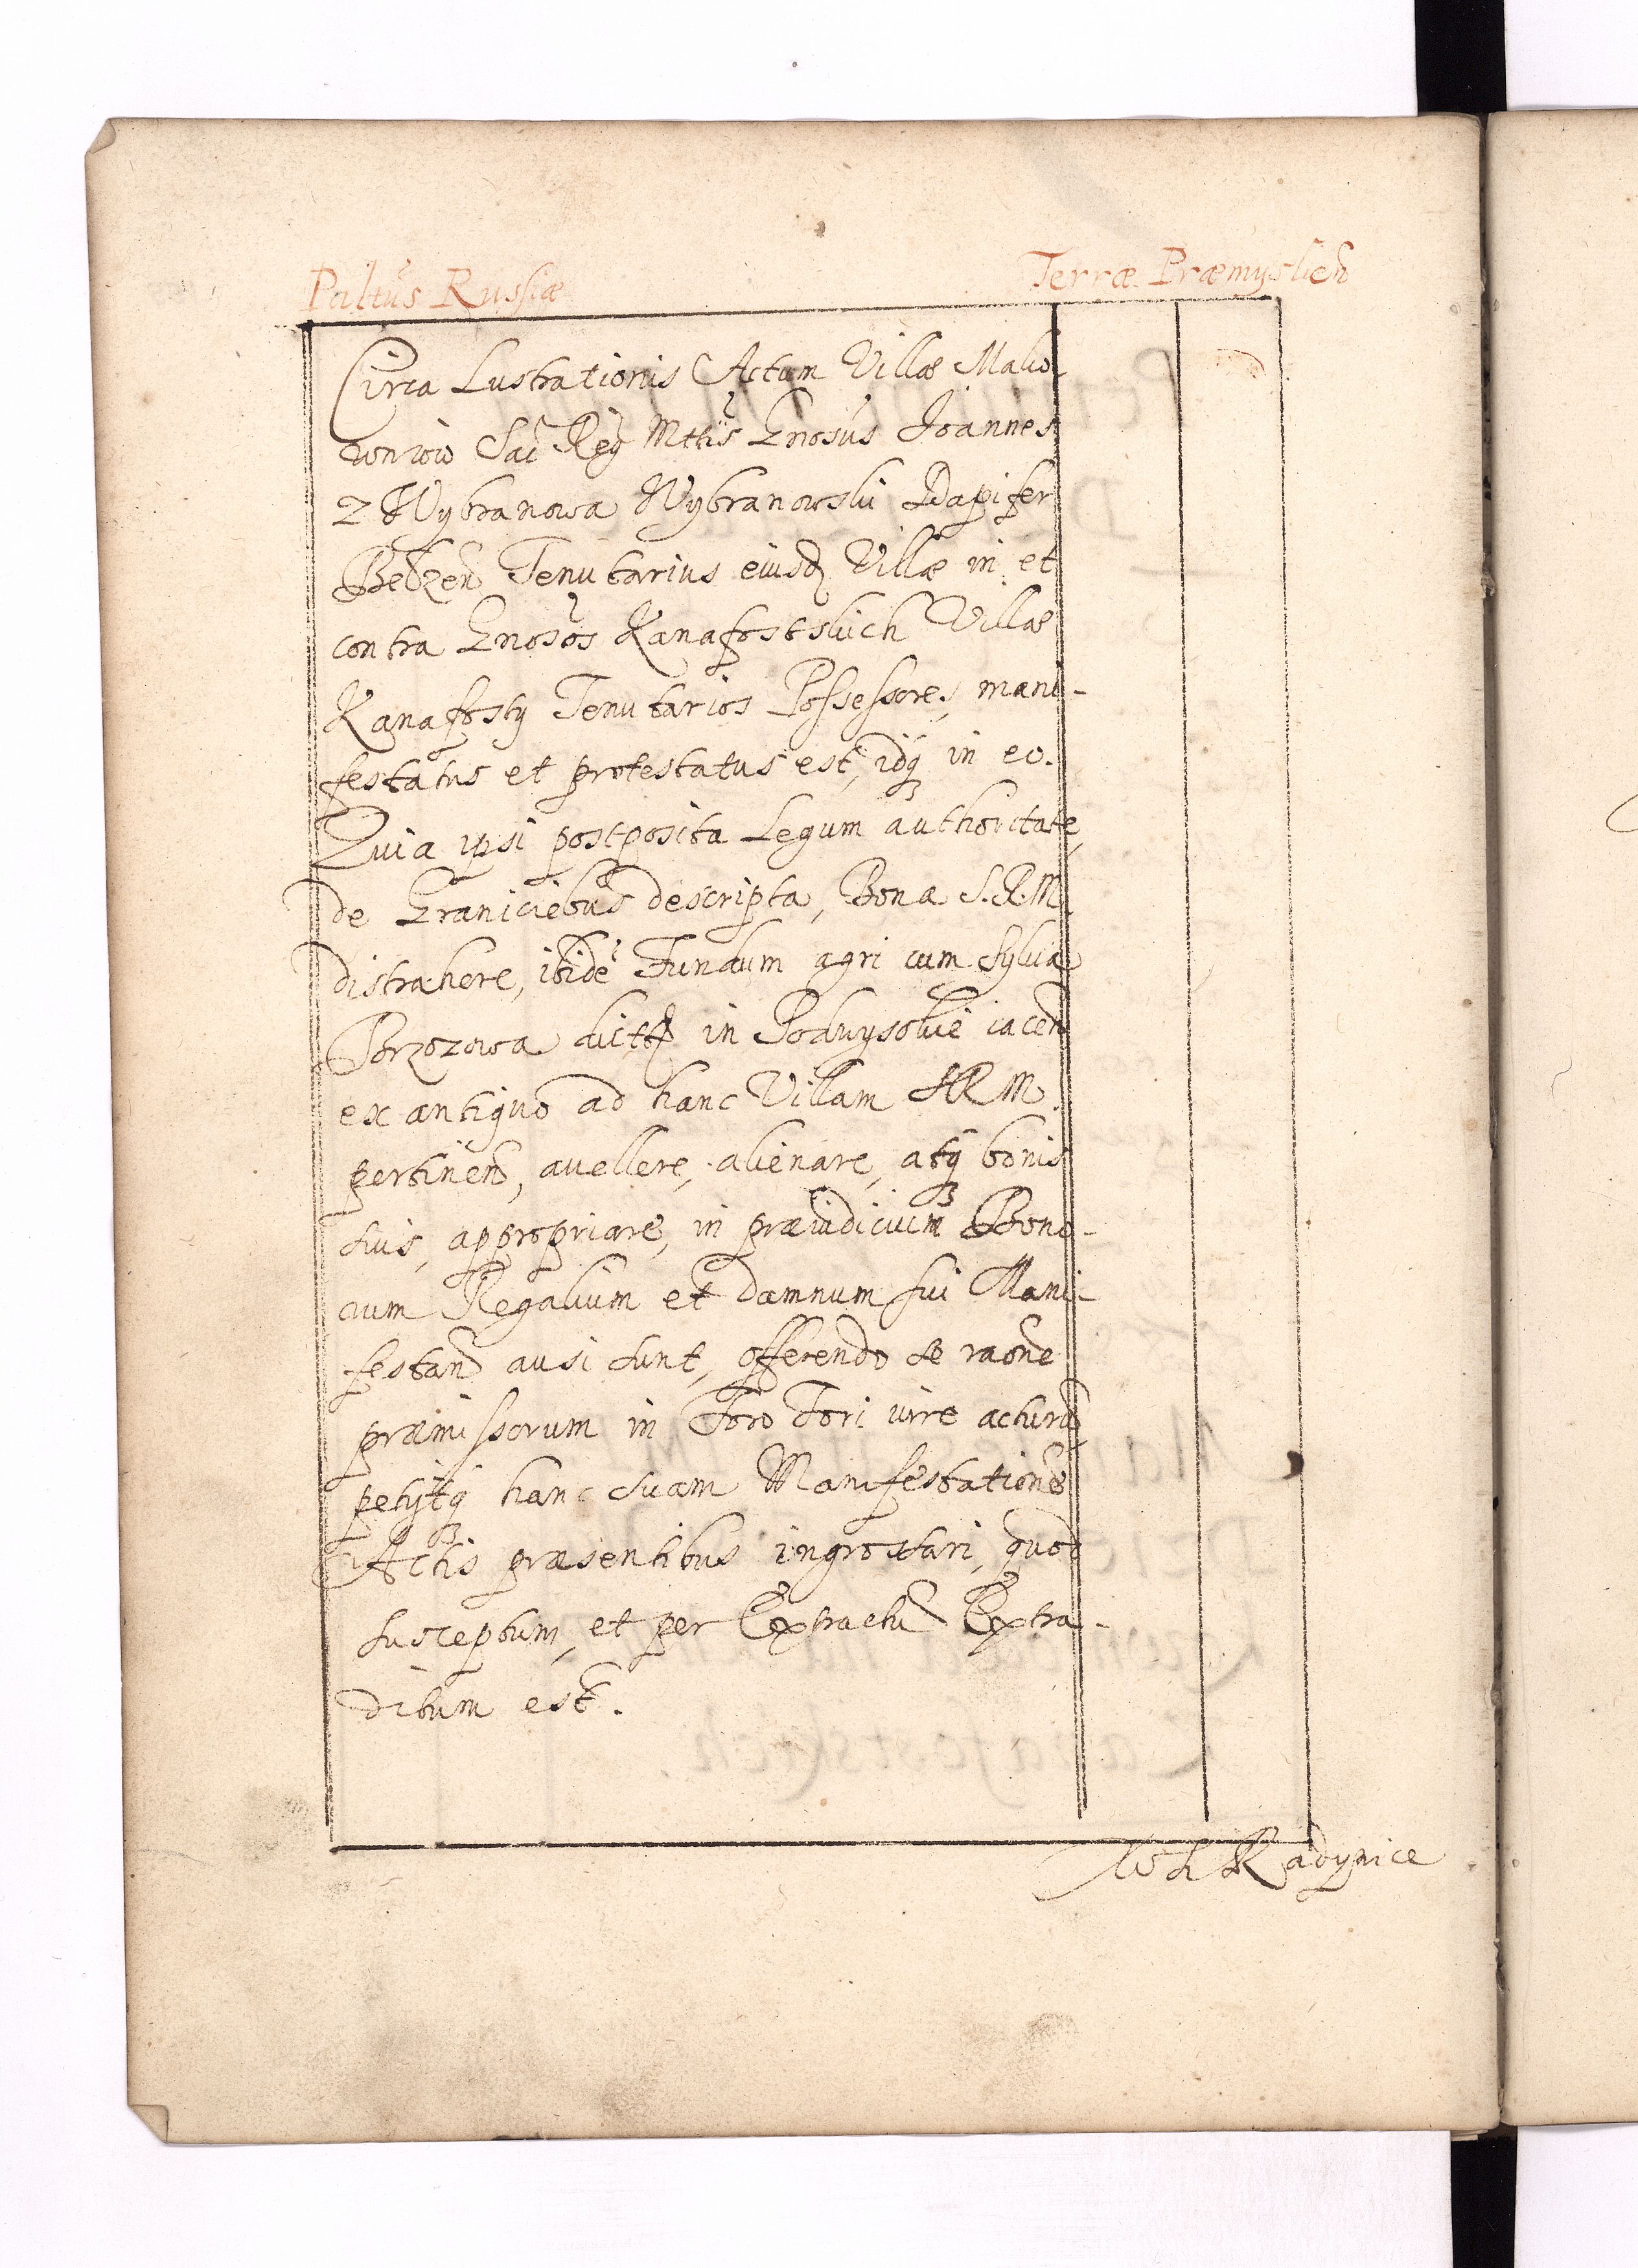 Paltus Russiæ
Terræ Præmyslien
Circa Lustrationis Actum Villæ Mako-
woniow Sac Reg Mttis Gnosus Joannes
z Wybranowa Wybranowski Dapifer
Belzen Tenutarius eiusd Villæ in et
contra Gnosos Kanafostskich Villæ
Kanafosty Tenutarios Possessores, mani-
festatus et protestatus est, idq in eo.
Quia ipsi postposita Legum authoritate,
de Graniciebus descripta, Bona S.R.M.
distrahere, ibidē Fundum agri cum Sylva
Brzozowa in Podwysokie iacen
ex antiquo ad hanc Villam SRM.
pertinen, avellere, alienare, atq bonis
suis, appropriare, in præiudicium Bono-
rum Regalium et damnum sui Mani-
festan ausi sunt, offerendo se raone
præmissorum in Foro Fori iure acturu,
petijtq hanc suam Manifestatione
Actis præsentibus ingrossari, quod
susceptum, et per Extractu Extra-
ditum est.
Radynice